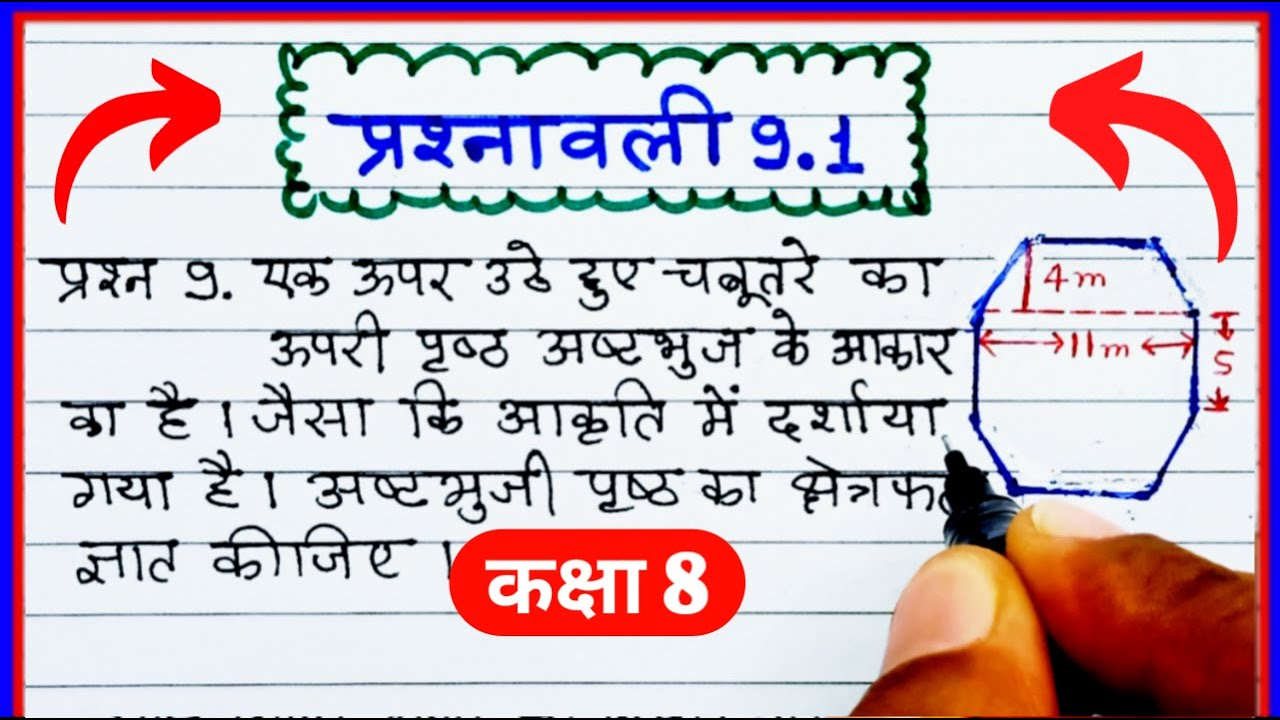 प्रश्नावली 9.1
प्रश्न 9. एक ऊपर उठे हुए चबूतरे का
ऊपरी पृष्ठ अष्टभुज के आकार
का है। जैसा कि आकृति में दर्शाया
गया है। अष्टभुजी पृष्ठ का
ज्ञात कीजिए ।
4m
11m
5
कक्षा 8